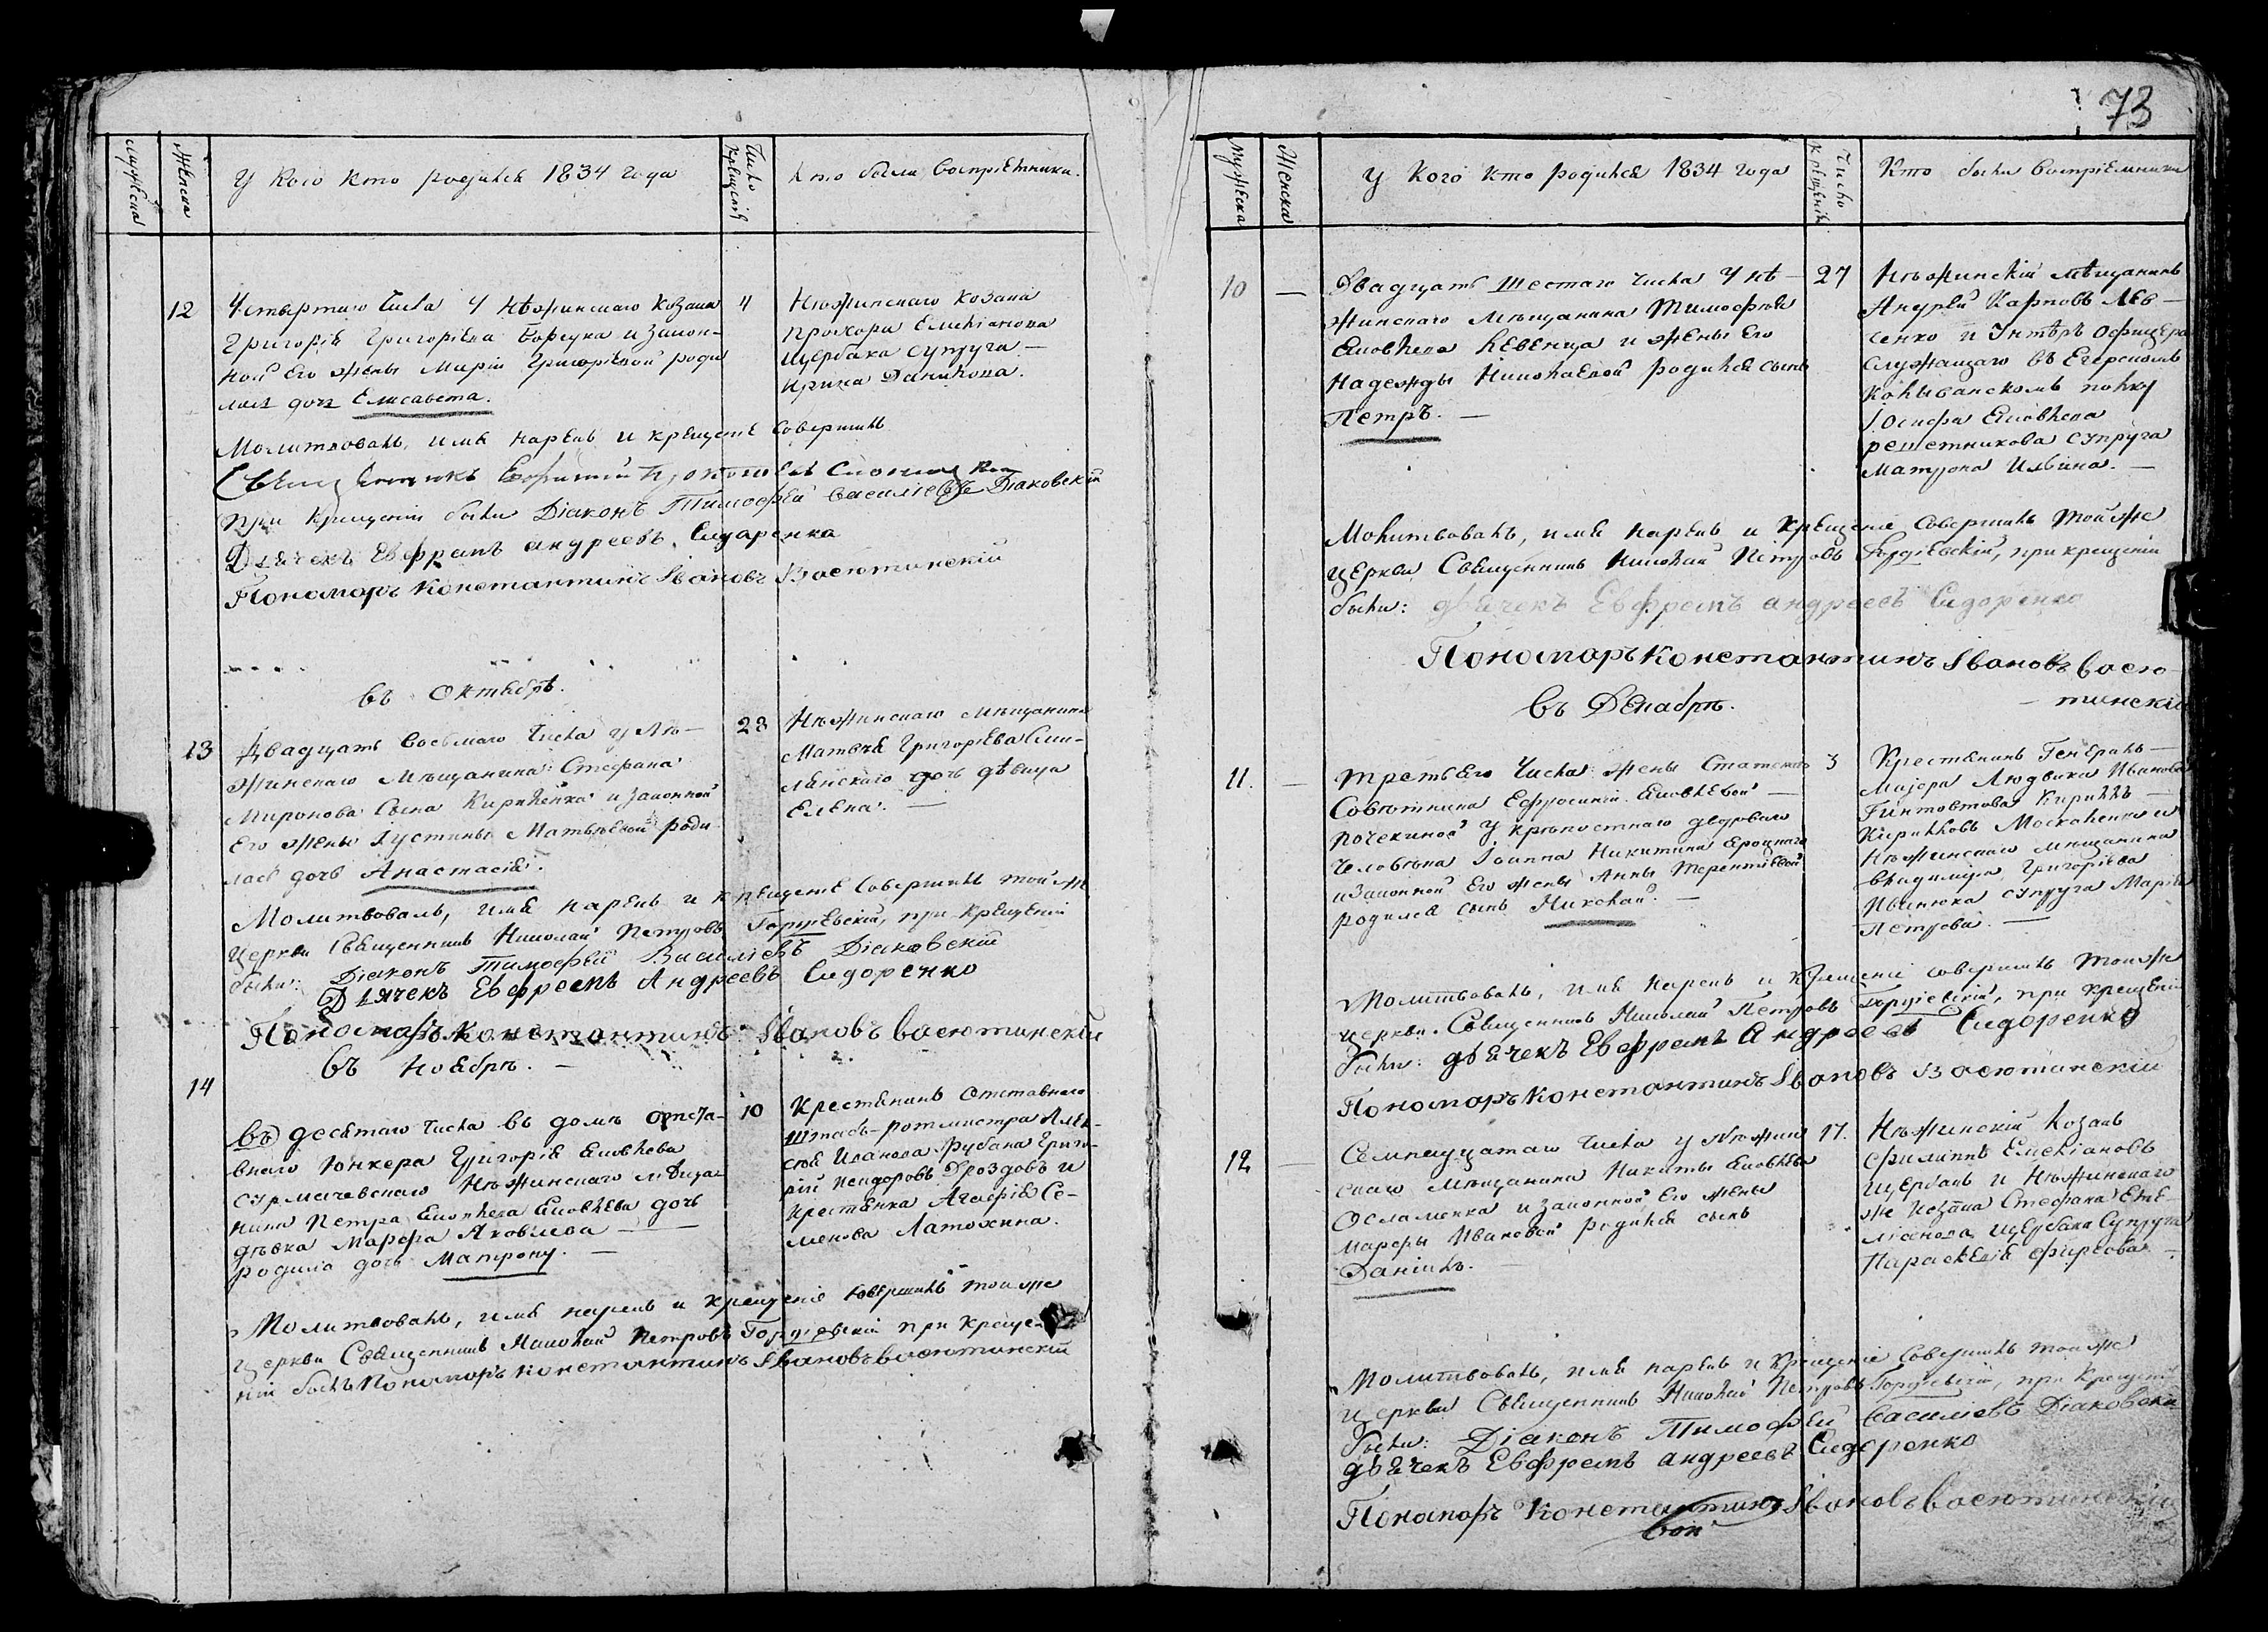 73
мужеска
Женска
У кого кто родился 1834 года
Число крещенія
Кто были воспріемники.
12
Четвертаго числа у нѣжинскаго козака
4
Григорія Григоріева и закон-
ной его жены Маріи Григоріевой роди
лась дочь Елисавета.
Нѣжинскаго козака
Прохора Емеліанова
Щербака супруга —
Ирина Данилова.
Молитвовалъ, имя нарекъ и крещеніе совершилъ
Священникъ
при крещеніи были Діаконъ Тимофей Василіевъ Діаковскій
Дьячекъ Евфремъ андреевъ Сидаренка
Пономаръ Константинъ Ивановъ Васютинскій
въ Октябрѣ.
13
Двадцать восьмаго числа у Нѣ—
28
жинскаго мѣщанина Стефана
Миронова сына Кириленка и законной
его жены Іустины Матвѣевой роди
лась дочь Анастасія.
Нѣжинскаго мѣщанина
Матвѣя Григоріева Смо-
ленскаго дочь дѣвица
Елена. —
Молитвовалъ, имя нарекъ и крещеніе совершилъ той же
церкви Священникъ Николай Петровъ Гордіевскій, при крещеніи
были: Діаконъ Тимофей Василіевъ Діаковскій
Дьячекъ Евфремъ Андреевъ Сидоренко
Пономаръ Константинъ Ивановъ Васютинскій
въ Ноябрѣ. —
14
въ десятаго числа въ домѣ отста-
10
внаго Юнкера Григорія Яковлева
нѣжинскаго мѣща
нина Петра Яковлева дочь
дѣвка Марфа Яковлева —
родила дочь Матрону. —
Крестянинъ отставнаго
Штабъ-ротмистра Алек-
сѣя Иванова Рубана Григо-
рій Дроздовъ и
крестянка Агафія Се-
менова Латохина.
Молитвовалъ, имя нарекъ и крещеніе совершилъ той же
церкви Священникъ Николай Петровъ Гордіевскій при креще-
ніи былъ Пономаръ Константинъ Ивановъ Васютинскій
мужеска
Женска
У кого кто родился 1834 года
Число крещенія
Кто были воспріемники
10 —
Двадцать шестаго числа у нѣ—
27
жинскаго мѣщанина Тимофѣя
Яковлева Левенца и жены его
Надежды Николаевой родился сынъ
Петръ. —
Нѣжинскій мѣщанинъ
Андрей Карповъ Лев—
сенко и Унтеръ офицера
служащаго въ Егерскомъ
Колыванскомъ полку
Іосифа Яковлева
решетникова супруга
Матрона Ильина. —
Молитвовалъ, имя нарекъ и крещеніе совершилъ той же
церкви Священникъ Николай Петровъ Гордіевскій, при крещеніи
были: дьячекъ Евфремъ андреевъ Сидоренко
Пономаръ Константинъ Ивановъ Васю-
тинскій
въ Декабрѣ.
11. —
третьего числа жены Статскаго
3
Совѣтника Ефросиніи Яковлевой —
Почекиной у крѣпостнаго двороваго
человѣка Іоанна Никитина
и законной его жены Анны Терентіевой
родился сынъ Николай. —
Крестянинъ Генералъ—
Маіора Людвика Иванова
Гинтовтова Кириллъ —
Кириловъ Москаленко и
Нѣжинскаго мѣщанина
Владимира Григоріева
Ивнюка супруга Марія
Петрова. —
Молитвовалъ, имя нарекъ и крещеніе совершилъ той же
церкви Священникъ Николай Петровъ Гордіевскій, при крещеніи
были: дьячекъ Евфремъ Андреевъ Сидоренко
Пономаръ Константинъ Ивановъ Васютинскій
12 —
Семнадцатаго числа у Нѣжин
17.
скаго мѣщанина Никиты Яковлева
Осламенка и законной его жены
Марфы Ивановой родился сынъ
Даніилъ.
Нѣжинскій козакъ
Филиппъ Емеліановъ
Щербакъ и Нѣжинскаго
же козака Стефана Еме-
ліанова Щербака супруга
Параскевія Фирсова. —
Молитвовалъ, имя нарекъ и крещеніе совершилъ той же
церкви Священникъ Николай Петровъ Гордіевскій, при крещеніи
были: Діаконъ Тимофей Василіевъ Діаковскій
дьячекъ Евфремъ андреевъ Сидоренко
Пономаръ Константинъ Ивановъ Васютинскій